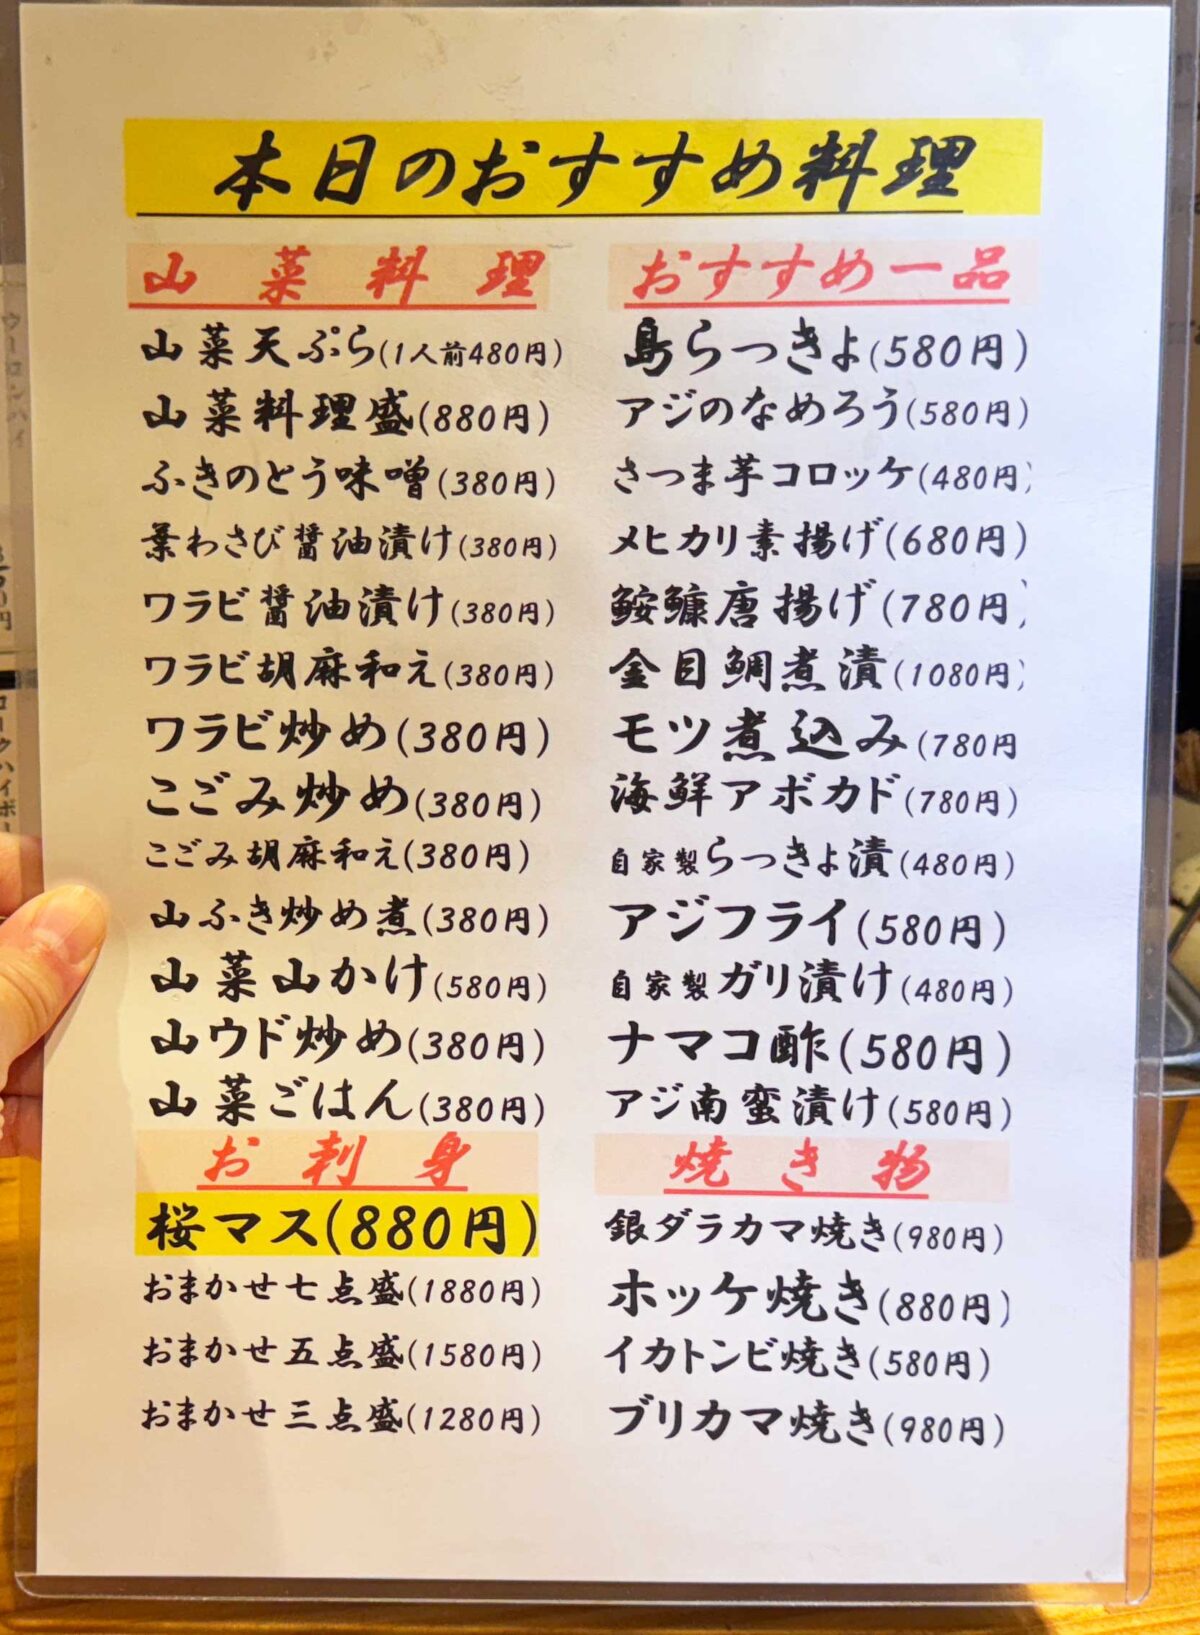 本日のおすすめ料理
山菜料理
山菜天ぷら(1人前480円)
山菜料理盛(880円)
ふきのとう味噌(380円)
葉わさび醤油漬け(380円)
ワラビ醤油漬け(380円)
ワラビ胡麻和え(380円)
ワラビ炒め(380円)
こごみ炒め(380円)
こごみ胡麻和え(380円)
山ふき炒め煮(380円)
山菜山かけ(580円)
山ウド炒め(380円)
山菜ごはん(380円)
お刺身
桜マス(880円)
おまかせ七点盛(1880円)
おまかせ五点盛(1580円)
おまかせ三点盛(1280円)
おすすめ一品
島らっきょ(580円)
アジのなめろう(580円)
さつま芋コロッケ(480円)
メヒカリ素揚げ(680円)
鮟鱇唐揚げ(780円)
金目鯛煮漬(1080円)
モツ煮込み(780円
海鮮アボカド(780円)
自家製らっきょ漬(480円)
アジフライ(580円)
自家製ガリ漬け(480円)
ナマコ酢(580円)
アジ南蛮漬け(580円)
焼き物
銀ダラカマ焼き(980円)
ホッケ焼き(880円)
イカトンビ焼き(580円)
ブリカマ焼き(980円)